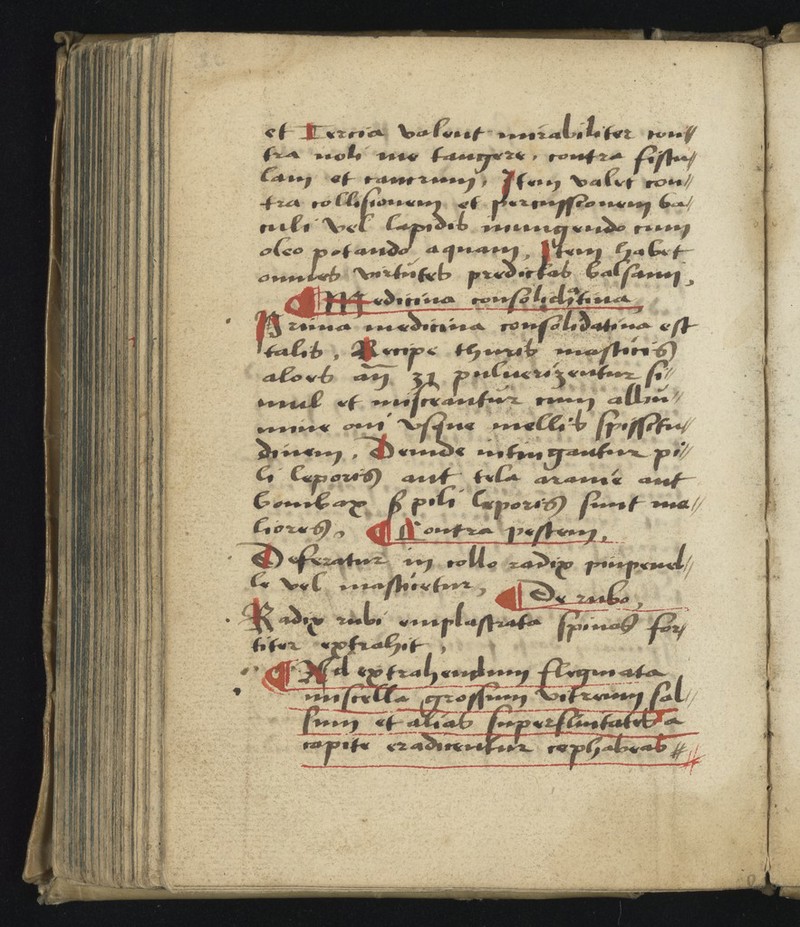 et Tercia valent mirabiliter con//
tra noli me tangere, contra fistu/
lam et cancrum, Item valet con//
tra collisionem et percussionem ba/
culi vel lapidis inungendo cum
oleo potando aquam, Item habet
omnes virtutes predictas balsami,
¶ Medicina consolidatiua
Prima medicina consolidatiua est
talis, Recipe thuris masticis
aloes añ ʒı puluerizentur si//
mul et misceantur cum albu//
mine oui vsque mellis spissitu//
dinem, Deinde intingantur pi//
li leporis aut tela aranie aut
bombax ß pili leporis sunt me//
liores, ¶ Contra pestem,
Deferatur in collo radix pimpenel//
le vel masticetur, ¶ De rubo,
Radix rubi emplastrata spinas for/
titer extrahit,
¶ Ad extrahendum flegmata
miscella grossum vitreum sal//
sum et alias superfluitates a
capite eradicentur cephaleas //